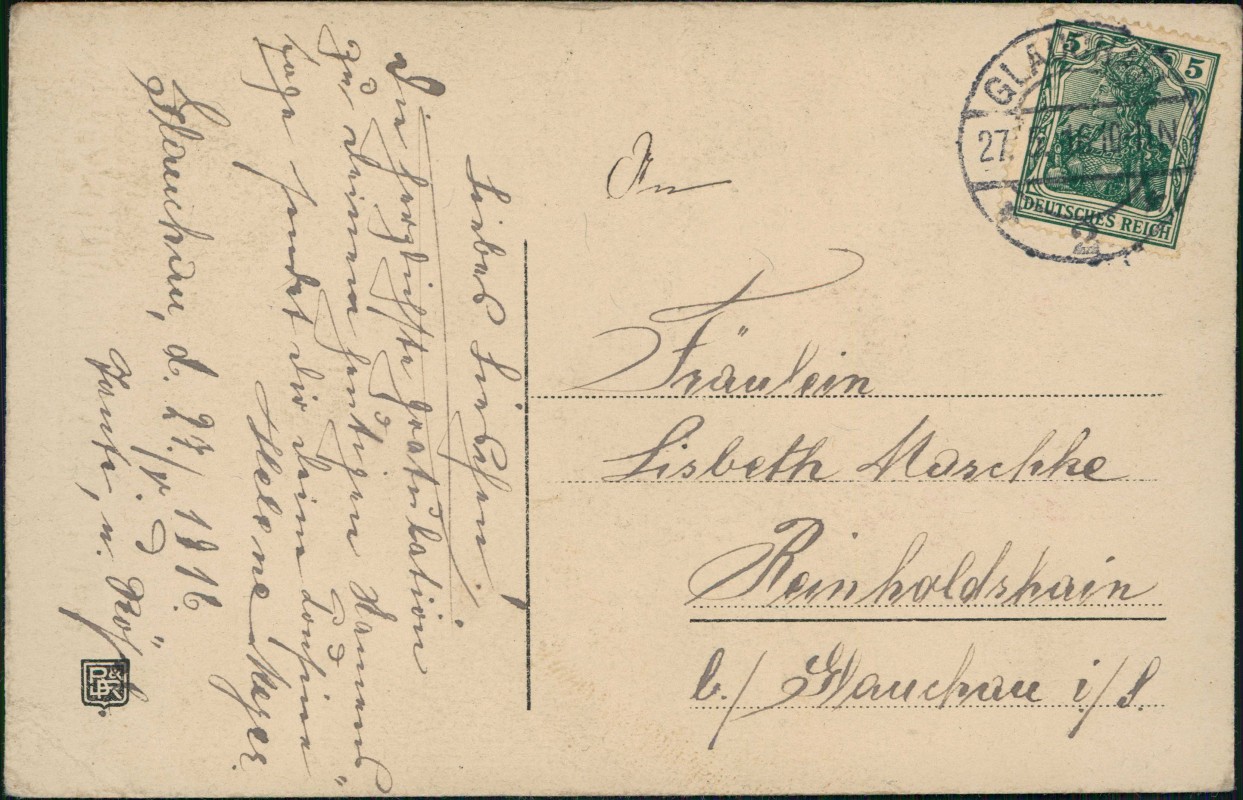 Liebes Lieschen!
Die herzlichste Gratulation
zu deinem heutigen Namens-
tage sendet dir deine Cousine
Helene Meyer.
Glauchau, d. 27./V. 1916.
Tante, u.
An
Fräulein
Lisbeth Maschke
Reinholdshain
b./ Glauchau i/S.
5 5
DEUTSCHES REICH
27. 16.10-11N
2